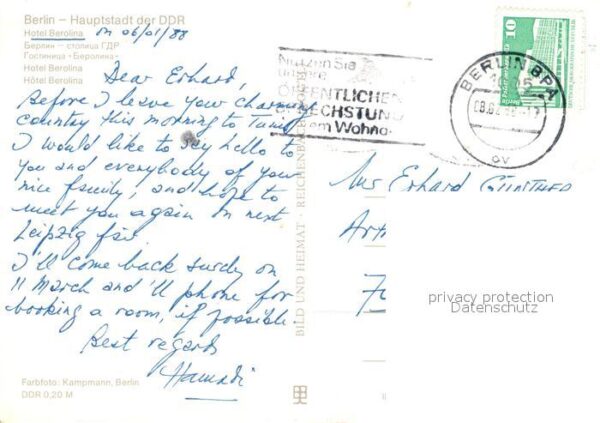 Berlin – Hauptstadt der DDR
Hotel Berolina
Берлин – столица ГДР
Гостиница «Беролина»
Hotel Berolina
Hôtel Berolina
on 06/01/88
Dear Erhard,
Before I leave your charming
country this morning to Tunis
I would like to say hello to
you and everybody of your
nice family, and hope to
meet you again on next
Leipzig fair.
I'll come back surely on
11 March and 'll phone for
booking a room, if possible.
Best regards
Hamadi
Farbfoto: Kampmann, Berlin
DDR 0,20 M
BILD UND HEIMAT · REICHENBACH
Nutzen Sie
unsere
ÖFFENTLICHEN
10
BERLIN BPA
ov
Erhard
privacy protection
Datenschutz